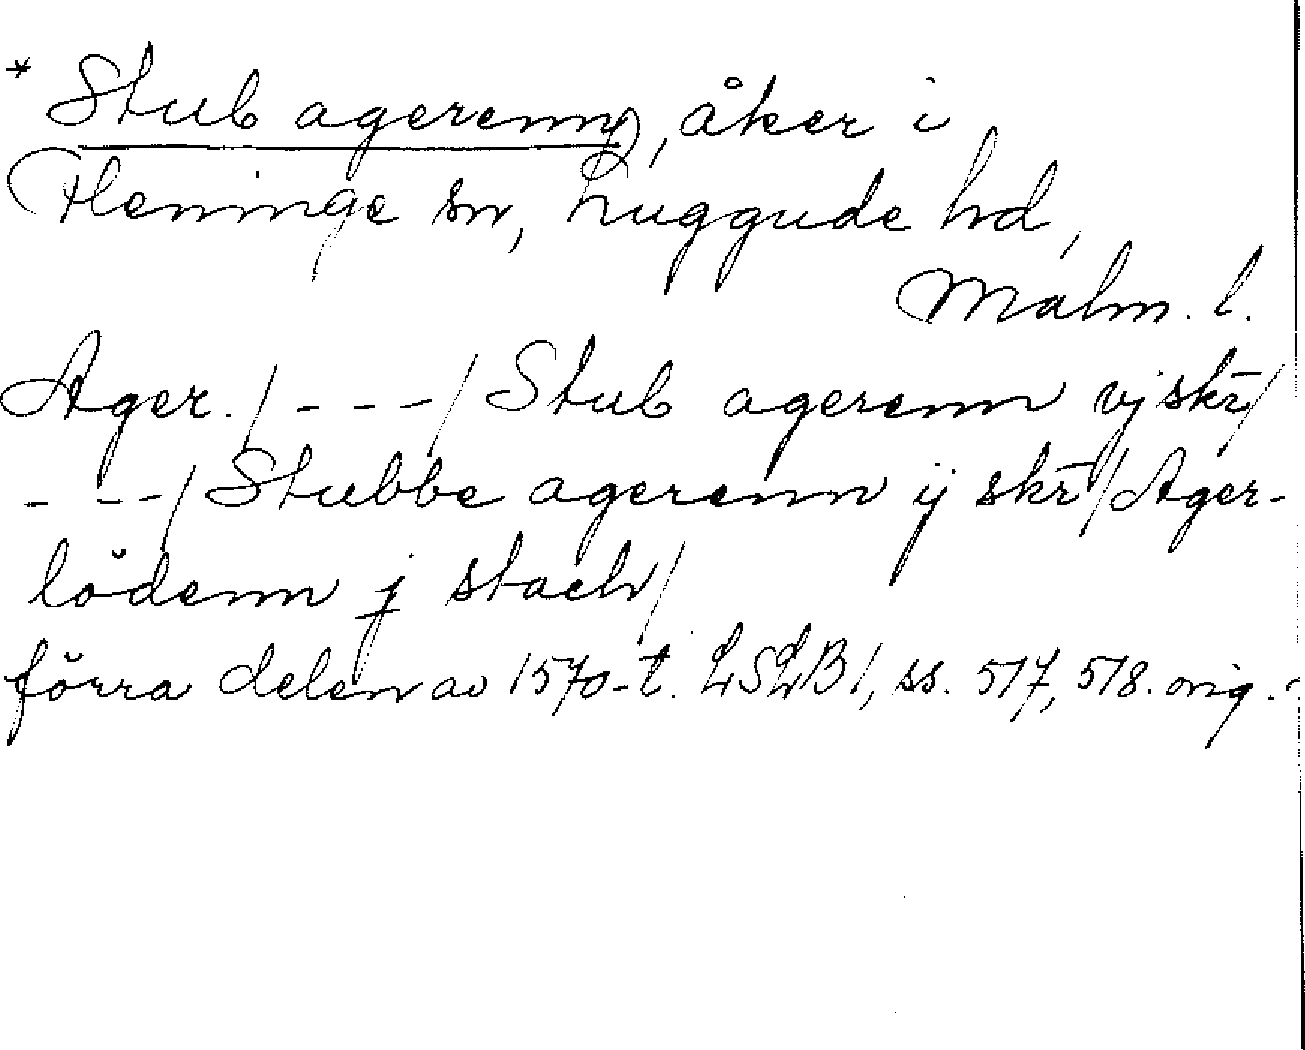 * Stub agerenn, åker i
Fleninge sn, Luggude hd,
Malm. l.
Ager./ - - - / Stub agerenn vj skr/
- - - / Stubbe agerenn ij skr / Ager-
lödenn j stach /
förra delen av 1570-t. LSLB 1, ss. 517, 518. orig.